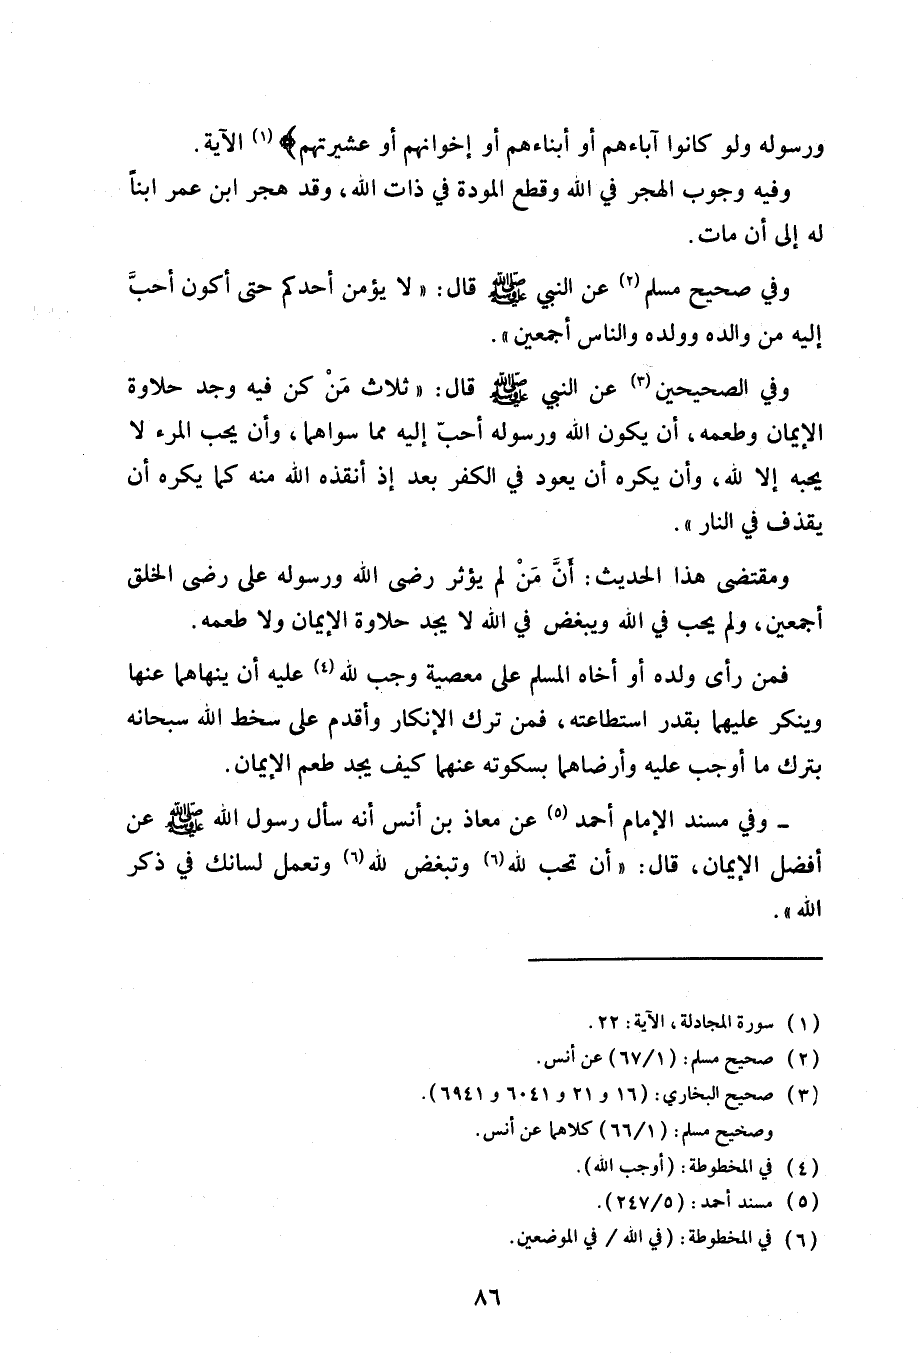 ورسوله ولو كانوا آباءهم أو أبناءهم أو إخوانهم أو عشيرتهم﴾ (١) الآية.
وفيه وجوب الهجر في الله وقطع المودة في ذات الله، وقد هجر ابن عمر ابناً
له إلى أن مات.
وفي صحيح مسلم (٢) عن النبي ﷺ قال: « لا يؤمن أحدكم حتى أكون أحبَّ
إليه من والده وولده والناس أجمعين ».
وفي الصحيحين (٣) عن النبي ﷺ قال: « ثلاث مَنْ كن فيه وجد حلاوة
الإيمان وطعمه، أن يكون الله ورسوله أحبّ إليه مما سواهما، وأن يحب المرء لا
يحبه إلا لله، وأن يكره أن يعود في الكفر بعد إذ أنقذه الله منه كما يكره أن
يقذف في النار ».
ومقتضى هذا الحديث: أَنَّ مَنْ لم يؤثر رضى الله ورسوله على رضى الخلق
أجمعين، ولم يحب في الله ويبغض في الله لا يجد حلاوة الإيمان ولا طعمه.
فمن رأى ولده أو أخاه المسلم على معصية وجب لله (٤) عليه أن ينهاهما عنها
وينكر عليهما بقدر استطاعته، فمن ترك الإنكار وأقدم على سخط الله سبحانه
بترك ما أوجب عليه وأرضاهما بسكوته عنهما كيف يجد طعم الإيمان.
ـ وفي مسند الإمام أحمد (٥) عن معاذ بن أنس أنه سأل رسول الله ﷺ عن
أفضل الإيمان، قال: « أن تحب لله (٦) وتبغض لله (٦) وتعمل لسانك في ذكر
الله ».
(١) سورة المجادلة، الآية: ٢٢.
(٢) صحيح مسلم: (٦٧/١) عن أنس.
(٣) صحيح البخاري: (١٦ و ٢١ و ٦٠٤١ و ٦٩٤١).
وصخيح مسلم: (٦٦/١) كلاهما عن أنس.
(٤) في المخطوطة: (أوجب الله).
(٥) مسند أحمد: (٢٤٧/٥).
(٦) في المخطوطة: (في الله / في الموضعين.
٨٦